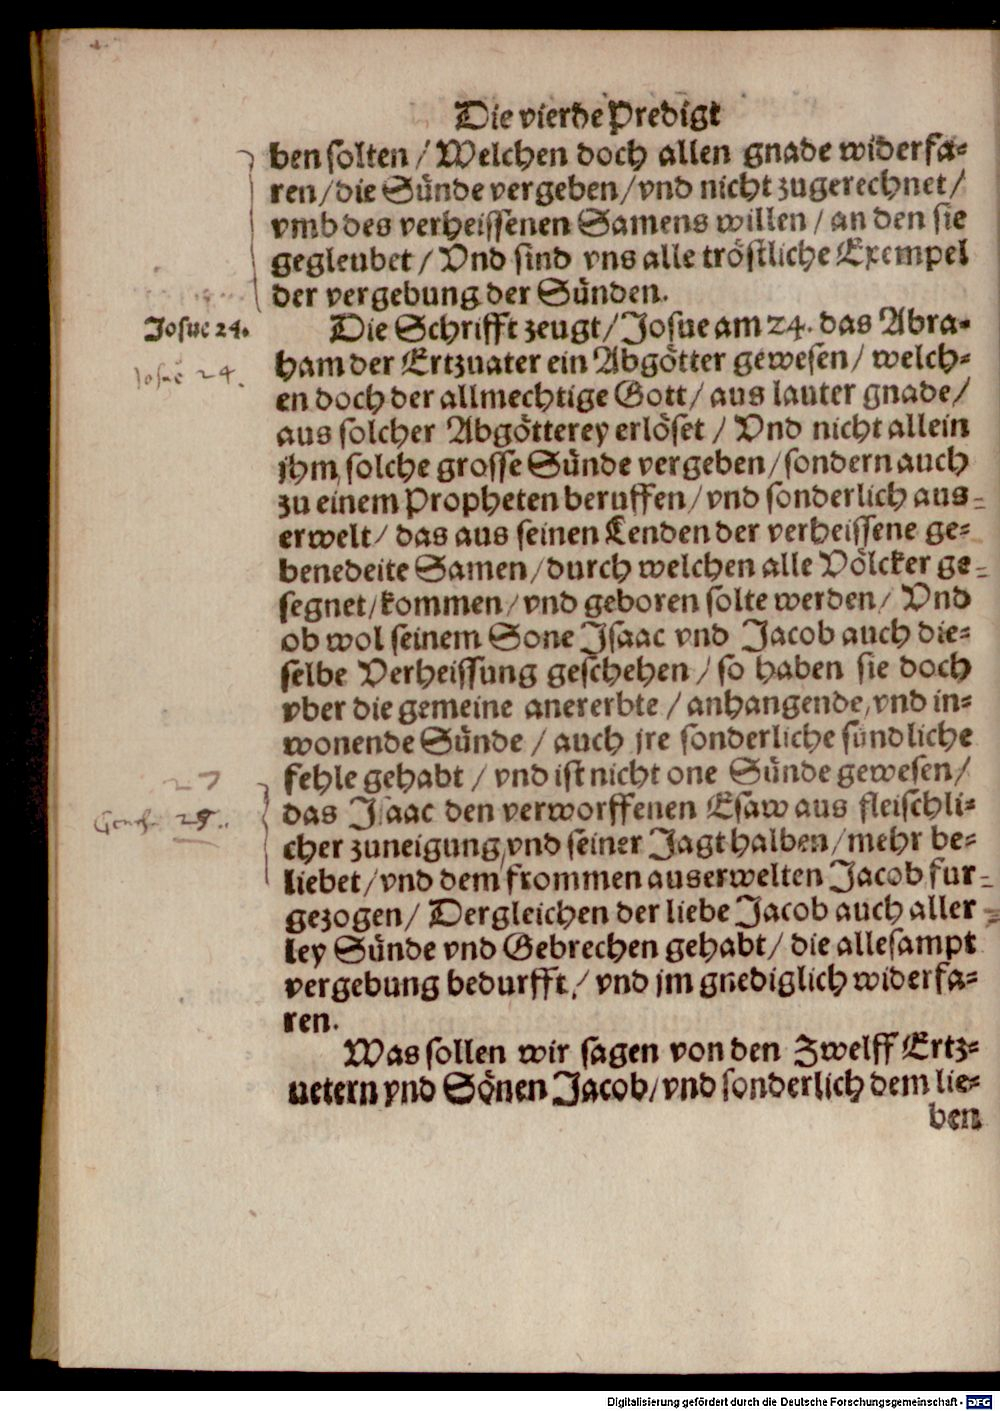 Die vierde Predigt
ben solten / Welchen doch allen gnade widerfa-
ren / die Sünde vergeben / vnd nicht zugerechnet /
vmb des verheissenen Samens willen / an den sie
gegleubet / Vnd sind vns alle tröstliche Exempel
der vergebung der Sünden.
Josue 24.
Die Schrifft zeugt / Josue am 24. das Abra-
Josue 24.
ham der Ertzuater ein Abgötter gewesen / welch-
en doch der allmechtige Gott / aus lauter gnade /
aus solcher Abgötterey erlöset / Vnd nicht allein
jhm solche grosse Sünde vergeben / sondern auch
zu einem Propheten beruffen / vnd sonderlich aus-
erwelt / das aus seinen Lenden der verheissene ge-
benedeite Samen / durch welchen alle Völcker ge-
segnet / kommen / vnd geboren solte werden / Vnd
ob wol seinem Sone Isaac vnd Jacob auch die-
selbe Verheissung geschehen / so haben sie doch
vber die gemeine anererbte / anhangende, vnd in-
wonende Sünde / auch jre sonderliche sündliche
fehle gehabt / vnd ist nicht one Sünde gewesen /
27
das Isaac den verworffenen Esaw aus fleischli-
Genes. 25.
cher zuneigung, vnd seiner Jagt halben / mehr be-
liebet / vnd dem frommen auserwelten Jacob fur-
gezogen / Dergleichen der liebe Jacob auch aller-
ley Sünde vnd Gebrechen gehabt / die allesampt
vergebung bedurfft / vnd jm gnediglich widerfa-
ren.
Was sollen wir sagen von den Zwelff Ertz-
uetern vnd Sönen Jacob / vnd sonderlich dem lie-
ben
Digitalisierung gefördert durch die Deutsche Forschungsgemeinschaft - DFG